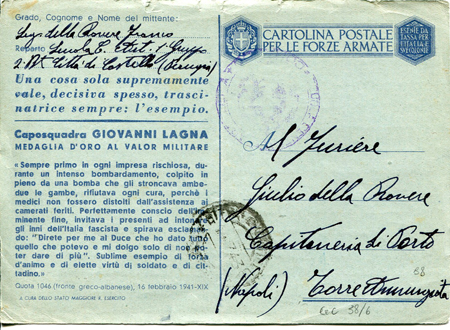 Grado, Cognome e Nome del mittente:
Serg. della Rovere Franco
Reparto Scuola E. Art. 1° Grup
2ª Bt. Città di Castello (Perugia)
Una cosa sola supremamente
vale, decisiva spesso, trasci-
natrice sempre: l'esempio.
Caposquadra GIOVANNI LAGNA
MEDAGLIA D'ORO AL VALOR MILITARE
«Sempre primo in ogni impresa rischiosa, du-
rante un intenso bombardamento, colpito in
pieno da una bomba che gli stroncava ambe-
due le gambe, rifiutava ogni cura, perchè i
medici non fossero distolti dall'assistenza ai
camerati feriti. Perfettamente conscio dell'im-
minente fine, invitava i presenti ad intonare
gli inni dell'Italia fascista e spirava esclaman-
do: "Direte per me al Duce che ho dato tutto
quello che potevo e mi dolgo solo di non po-
ter dare di più". Sublime esempio di forza
d'animo e di elette virtù di soldato e di cit-
tadino».
Quota 1046 (fronte greco-albanese), 16 febbraio 1941-XIX
A CURA DELLO STATO MAGGIORE R. ESERCITO
CARTOLINA POSTALE
PER LE FORZE ARMATE
ESENTE DA
TASSA PER
L'ITALIA E
COLONIE
Al Furiere
Giulio della Rovere
Capitaneria di Porto
(Napoli) Torre Annunziata
58
58/6